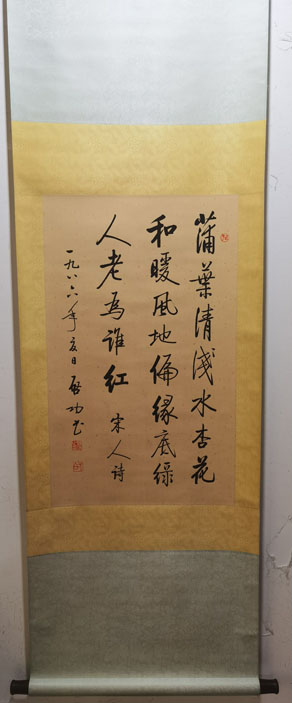 蒲葉清淺水杏花
和暖風地偏緣底綠
人老為誰紅 宋人詩
一九八六年夏日 啟功書